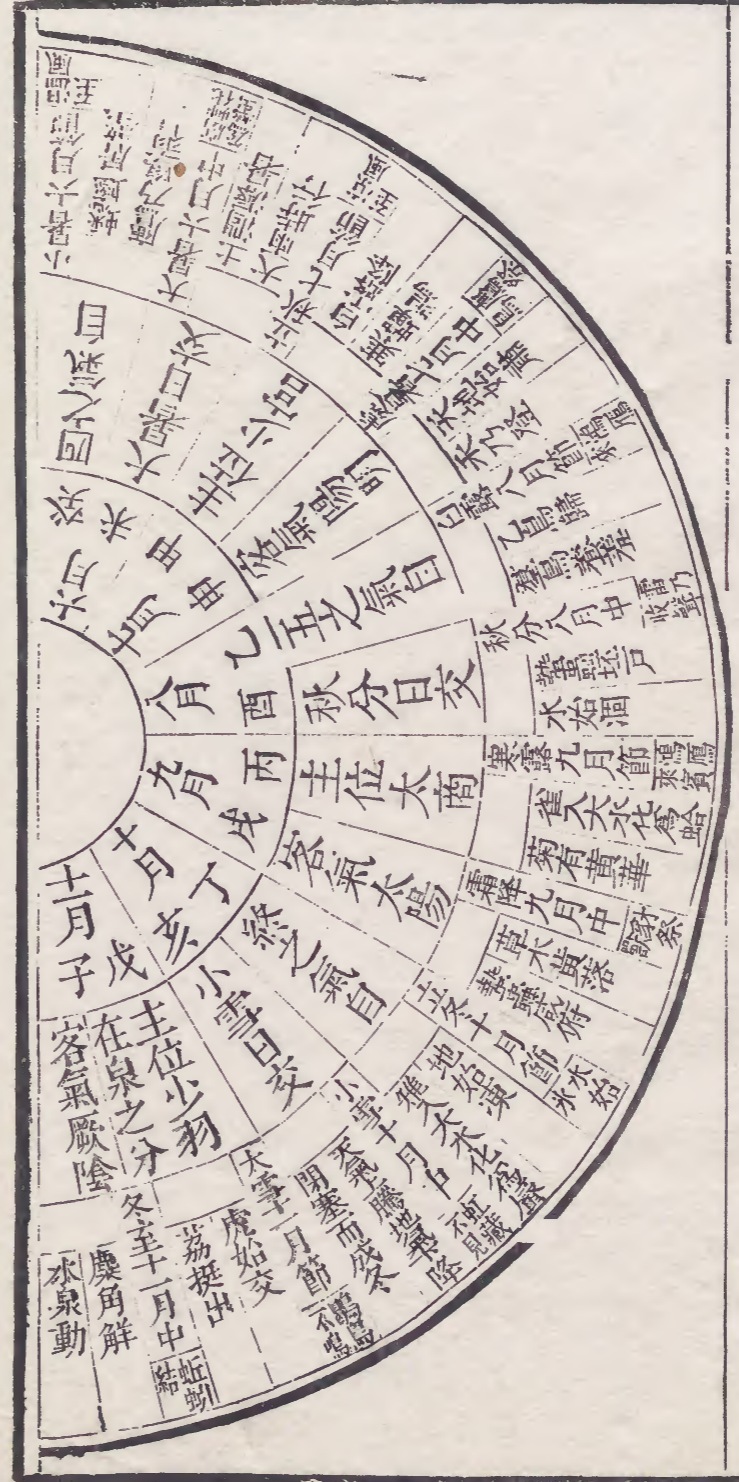 六月
未
坤
七月
申
八月
酉
九月
丙
戌
十月
丁
亥
十一月
戊
子
四之氣自
大暑日交
主位少商
客氣陽明
五之氣自
秋分日交
主位太商
客氣太陽
終之氣自
小雪日交
主位少羽
在泉之分
客氣厥陰
小暑六月節
溫風至
蟋蟀居壁
鷹乃學習
大暑六月中
土潤溽暑
大雨時行
立秋七月節
白露降
寒蟬鳴
七月中
天地始肅
禾乃登
白露八月節
鴻鴈來
乙鳥歸
秋分八月中
雷乃收聲
蟄蟲坯戶
水始涸
寒露九月節
鴻鴈來賓
雀入大水化爲蛤
菊有黃華
霜降九月中
豺祭獸
草木黃落
蟄蟲咸俯
立冬十月節
水始冰
地始凍
雉入大水化爲蜃
小雪十月中
虹藏不見
天氣騰地氣降
閉塞而成冬
大雪十一月節
虎始交
荔挺出
冬至十一月中
蚯蚓結
麋角解
水泉動